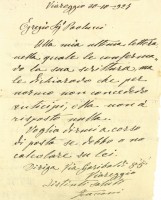 Viareggio 10-10-921
Egregio Sig Paolini
Alla mia ultima lettera
nella quale le confermavo
la sua scrittura, se
le dichiaravo che per
normo non concedevo
anticipi, Ella non à
risposto nulla.
Voglia dirmi a corso
di posta se debbo o no
calcolare su lei
Diriga Via Garibaldi
Viareggio
Distinti saluti